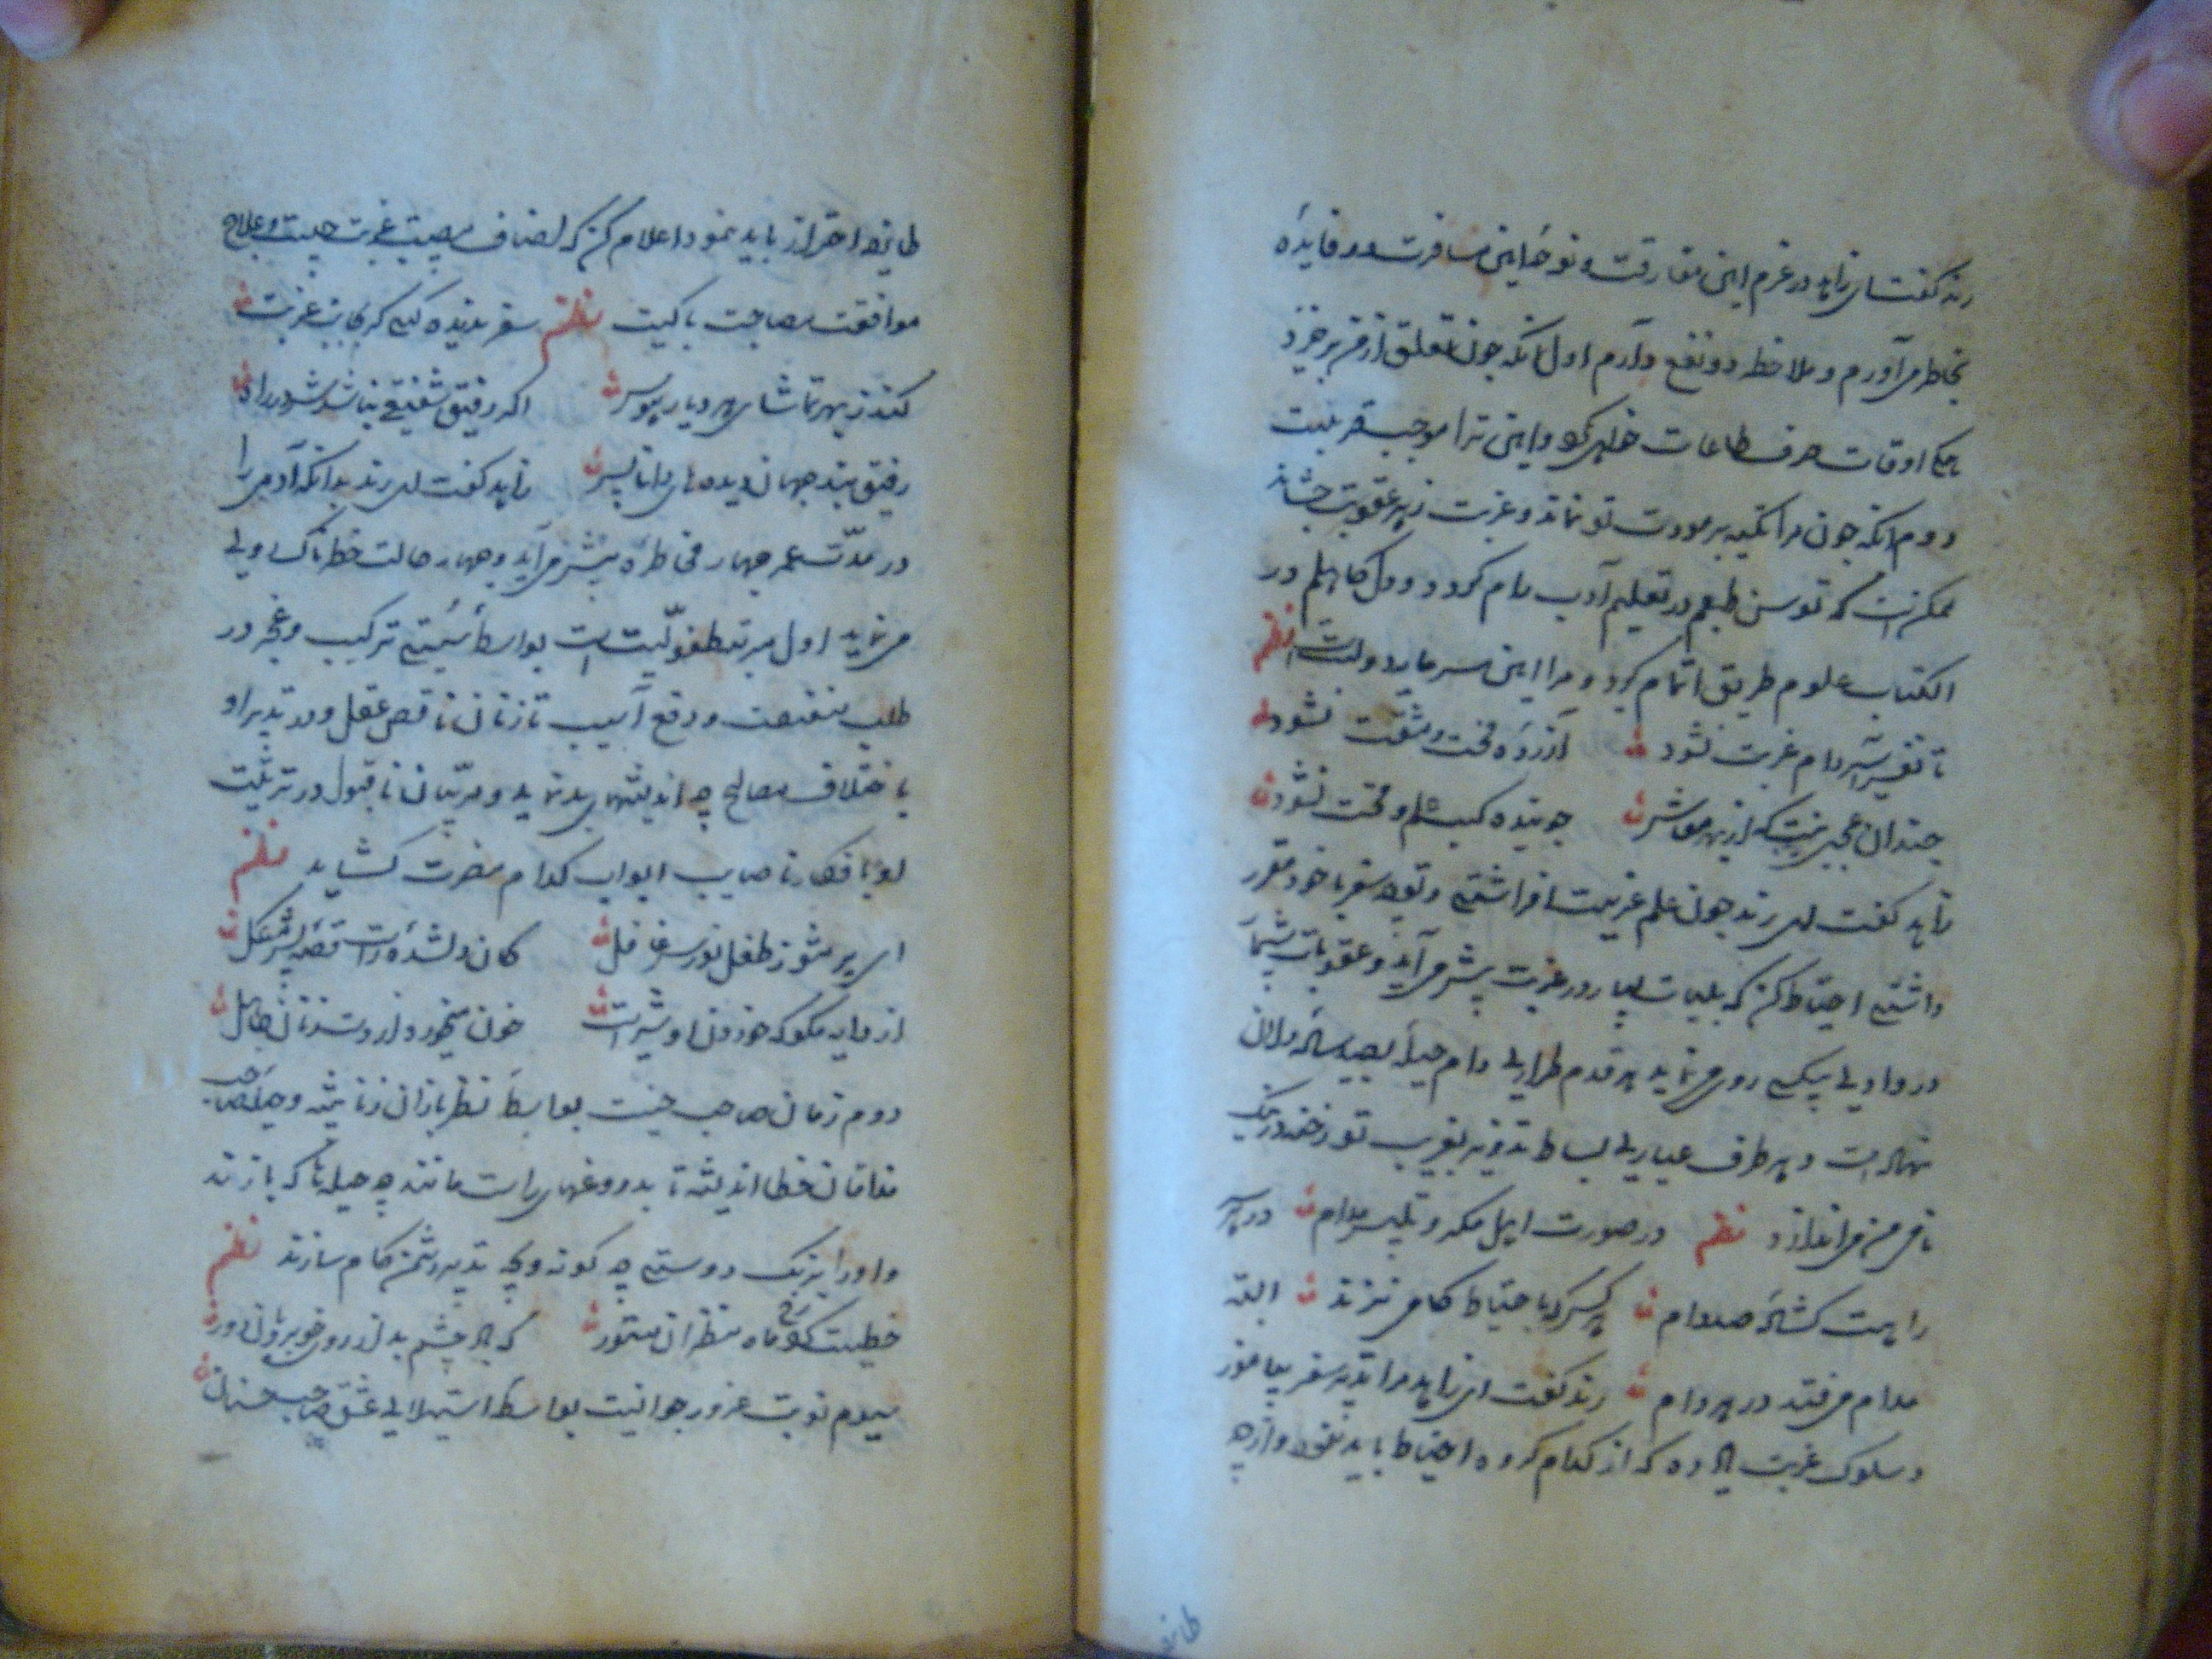 رند گفت ای زاهد در عزم این مفارقت و توجه این مسافرت دو فایده
بخاطر می آورم و ملاحظه دو نفع دارم اول انکه چون تعلق از من برخیزد
اوقات صرف طاعات خواهی کرد و این ترا موجب قربتست
دوم انکه چون مرا تکیه بر مودت تو نماند و غربت زهر عقوبت چشاند
ممکن است که توسن طبعم در تعلیم آداب رام گردد و دل کاهلم در
اکتساب علوم طریق اتمام گیرد و مرا این سرمایه دولتست نظم
تا نفس اسیر دام غربت نشود آزرده محنت و مشقت نشود
چندان عجبی نیست که از بهر معاش جوینده کسب علم و محنت نشود
زاهد گفت ای رند چون علم عزیمت افراشتی و توجه سفر با خود مقرر
داشتی احتیاط کن که بلیات بسیار در غربت پیش می آید و عقوبات بیشمار
در وادی بیکسی روی می نماید هر قدم طراری دام حیله بصید ساده دلان
نهاده است و هر طرف عیاری بساط تزویر بفریب نو
می اندازد نظم در صورت اهل مکر و تلبیس مدام در هر
راهیست کشاده صد دام هر کس که باحتیاط گامی نزند البته
مدام می فتد در هر دام رند گفت ای زاهد مرا تدبیر سفر بیاموز
و سلوک غربت یاد ده که از کدام گروه احتیاط باید نمود و از چه
طایفه
طایفه احتراز باید نمود اعلام کن که انصاف مصیبت غربت چیست و علاج
موافقت مصاحبت با کیست نظم سفر ندیده کسی کو بجانب غربت
کند ز بهر تماشای هر دیار هوس اگر رفیق شفیقی نباشدش در راه
رفیق بند جهان دیده های دانا بس زاهد گفت ای رند بدانکه آدمی را
در مدت عمر چهار مخاطره پیش می آید و چهار حالت خطرناک روی
می نماید اول مرتبه طفولیت است بواسطه سستی ترکیب و عجز در
طلب منفعت و دفع آسیب تا زنان ناقص عقل در تدبیر او
باختلاف مصالح چه اندیشهای بد نماید و مربیان ناقبول در تربیت
او بافکار ناصایب ابواب کدام مضرت کشاید نظم
ای پیر مشو ز طفل نورس غافل
از دایه مگو که خوردن او شیر است خون میخورد از دست زنان جاهل
دوم زمان صاحب حسنیست بواسطه نظربازان زناپیشه و حیله صاحب
مذاقان خطا اندیشه تا بدروغهای راست مانند چه حیله ها که بازند
و او را بزنک دوستی چه گونه و بچه تدبیر دشمن کام سازند نظم
که باد چشم بد از روی خوبرویان دور
سیوم نوبت غرور جوانیست بواسطه استیلای عشق صاحب حسنان